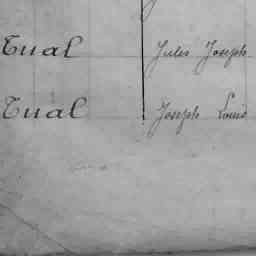 Tual Jules Joseph
Tual Joseph Louis